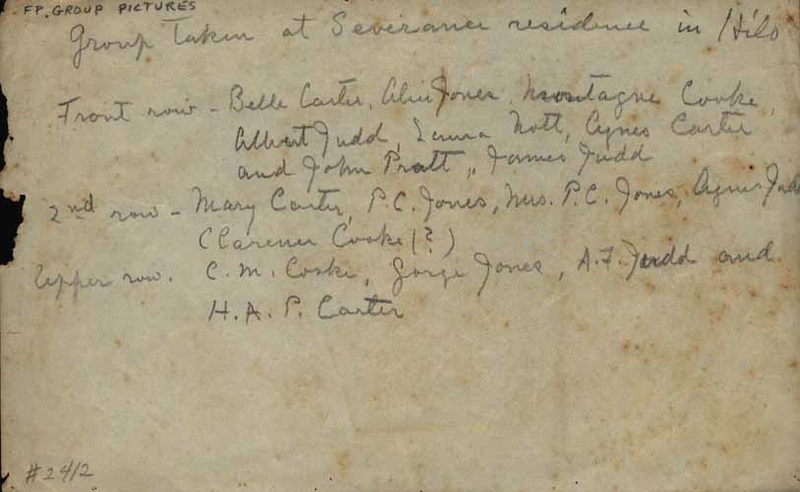 FP. GROUP PICTURES
Group Taken at Severance residence in Hilo
Front row - Belle Carter, Alice Jones, Montague Cooke,
Albert Judd, Laura Nott, Agnes Carter
and John Pratt, James Judd
2nd row - Mary Carter, P.C. Jones, Mrs. P.C. Jones, Agnes Judd
Clarence Cooke (?)
Upper row. C. M. Cooke, George Jones, A.F. Judd and
H. A. P. Carter
#2412